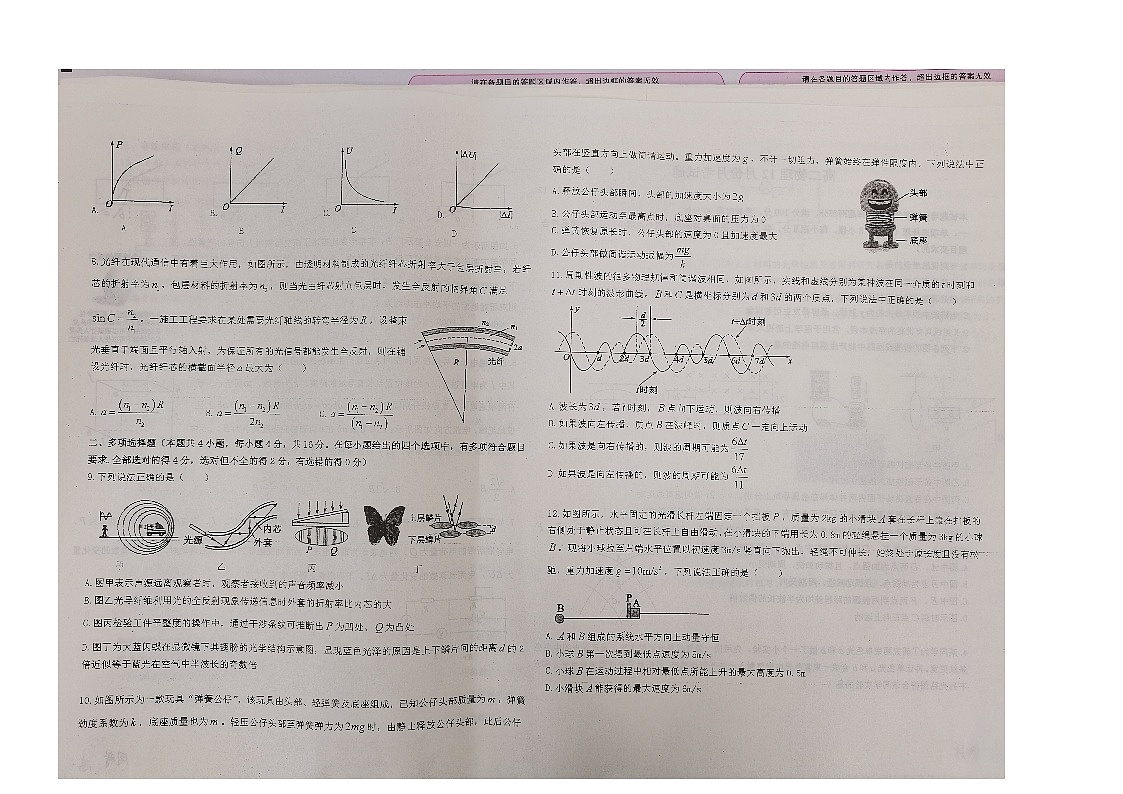 请在各题目的答题区域内作答，超出边框的答案无效
请在各题目的答题区域内作答，超出边框的答案无效
P
I
O
A.
A
Q
I
O
B.
B
U
I
O
C.
C
|ΔU|
|ΔI|
O
D.
D
8.光纤在现代通信中有着巨大作用，如图所示，由透明材料制成的光纤纤芯折射率大于包层折射率，若纤
芯的折射率为n₁，包层材料的折射率为n₂，则当光由纤芯射向包层时，发生全反射的临界角C满足
sinC=n₂/n₁，一施工工程要求在某处需要光纤轴线的转弯半径为R，设将束
光垂直于端面且平行轴入射，为保证所有的光信号都能发生全反射，则在铺
设光纤时，光纤纤芯的横截面半径a最大为（ ）
n₂
n₁
2a
R
光纤
A. a=(n₁-n₂)R/n₂
B. a=(n₁-n₂)R/2n₂
C. a=(n₁-n₂)R/(n₁+n₂)
二、多项选择题（本题共4小题，每小题4分，共16分。在每小题给出的四个选项中，有多项符合题目
要求.全部选对的得4分，选对但不全的得2分，有选错的得0分）
9.下列说法正确的是（ ）
甲
光源
内芯
外套
乙
P
Q
丙
上层鳞片
下层鳞片
丁
A.图甲表示声源远离观察者时，观察者接收到的声音频率减小
B.图乙光导纤维利用光的全反射现象传递信息时外套的折射率比内芯的大
C.图丙检验工件平整度的操作中，通过干涉条纹可推断出P为凹处、Q为凸处
D.图丁为大蓝闪蝶在显微镜下其翅膀的光学结构示意图，呈现蓝色光泽的原因是上下鳞片间的距离d的2
倍近似等于蓝光在空气中半波长的奇数倍
10.如图所示为一款玩具“弹簧公仔”，该玩具由头部、轻弹簧及底座组成，已知公仔头部质量为m，弹簧
劲度系数为k，底座质量也为m。轻压公仔头部至弹簧弹力为2mg时，由静止释放公仔头部，此后公仔
头部在竖直方向上做简谐运动。重力加速度为g，不计一切阻力，弹簧始终在弹性限度内，下列说法中正
确的是（ ）
A.释放公仔头部瞬间，头部的加速度大小为2g
B.公仔头部运动至最高点时，底座对桌面的压力为0
C.弹簧恢复原长时，公仔头部的速度为0且加速度最大
D.公仔头部做简谐运动振幅为mg/k
头部
弹簧
底座
11.周期性波的很多物理规律和简谐波相同，如图所示，实线和虚线分别为某种波在同一介质的t时刻和
t+Δt时刻的波形曲线，B和C是横坐标分别为d和3d的两个质点，下列说法中正确的是（ ）
y
d/2
t+Δt时刻
O
d
2d
3d
4d
5d
6d
7d
x
t时刻
A.波长为3d，若t时刻，B点向下运动，则波向右传播
B.如果波向左传播，质点B在波峰时，则质点C一定向上运动
C.如果波是向右传播的，则波的周期可能为6Δt/17
D.如果波是向左传播的，则波的周期可能为6Δt/11
12.如图所示，水平固定的光滑长杆左端固定一个挡板P，质量为2kg的小滑块A套在长杆上靠在挡板的
右侧处于静止状态且可在长杆上自由滑动，在小滑块的下端用长为0.8m的轻绳悬挂一个质量为3kg的小球
B，现将小球拉至左端水平位置以初速度3m/s竖直向下抛出，轻绳不可伸长，始终处于原长度且没有松
弛，重力加速度g=10m/s²，下列说法正确的是（ ）
B
P
A
A. A和B组成的系统水平方向上动量守恒
B.小球B第一次摆到最低点速度为5m/s
C.小球B在运动过程中相对最低点所能上升的最大高度为0.5m
D.小滑块A能获得的最大速度为6m/s